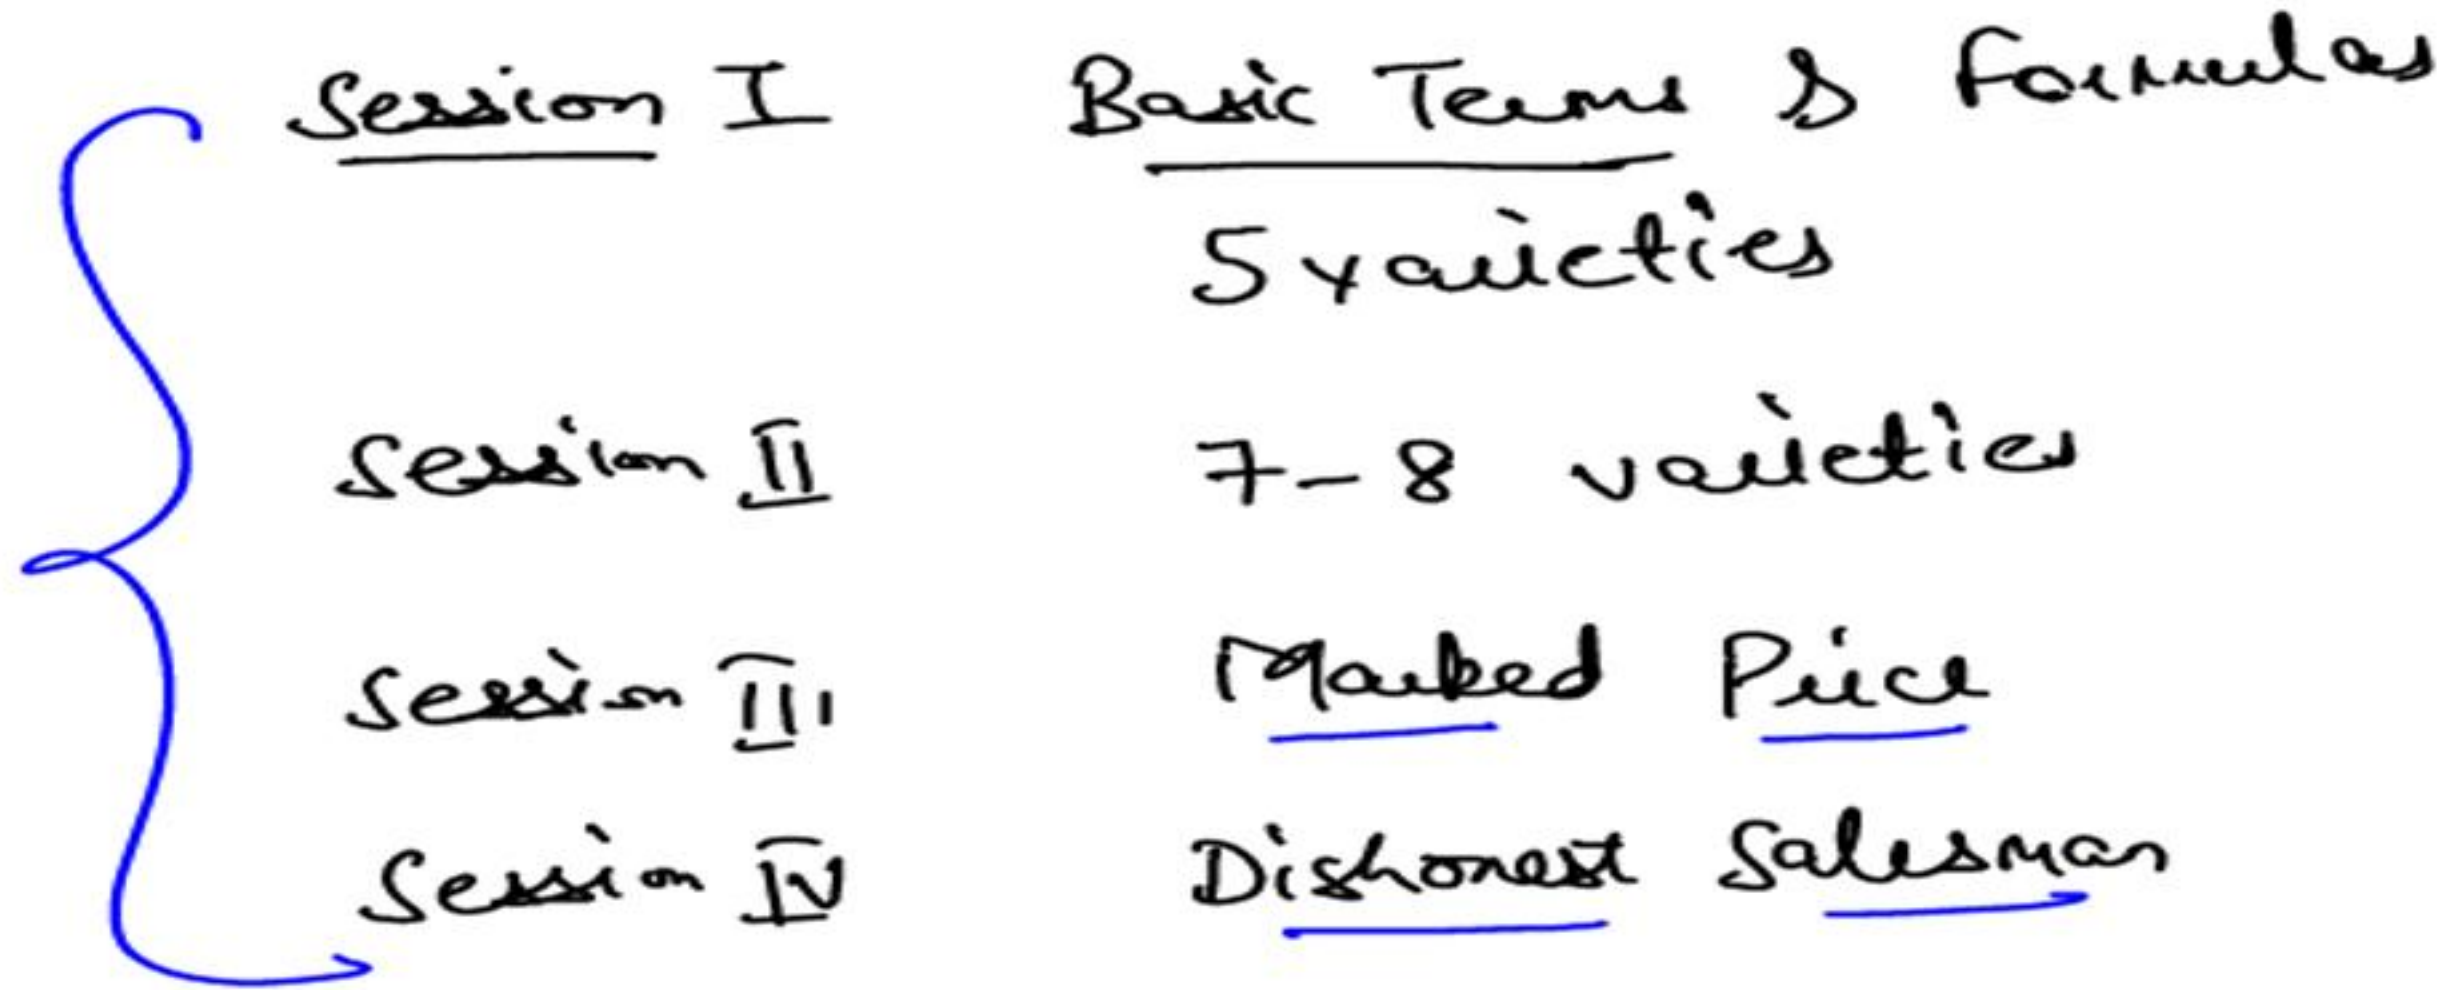 Session I Basic Terms & Formulas
5 varieties
Session II 7-8 varieties
Session III Marked Price
Session IV Dishonest Salesman